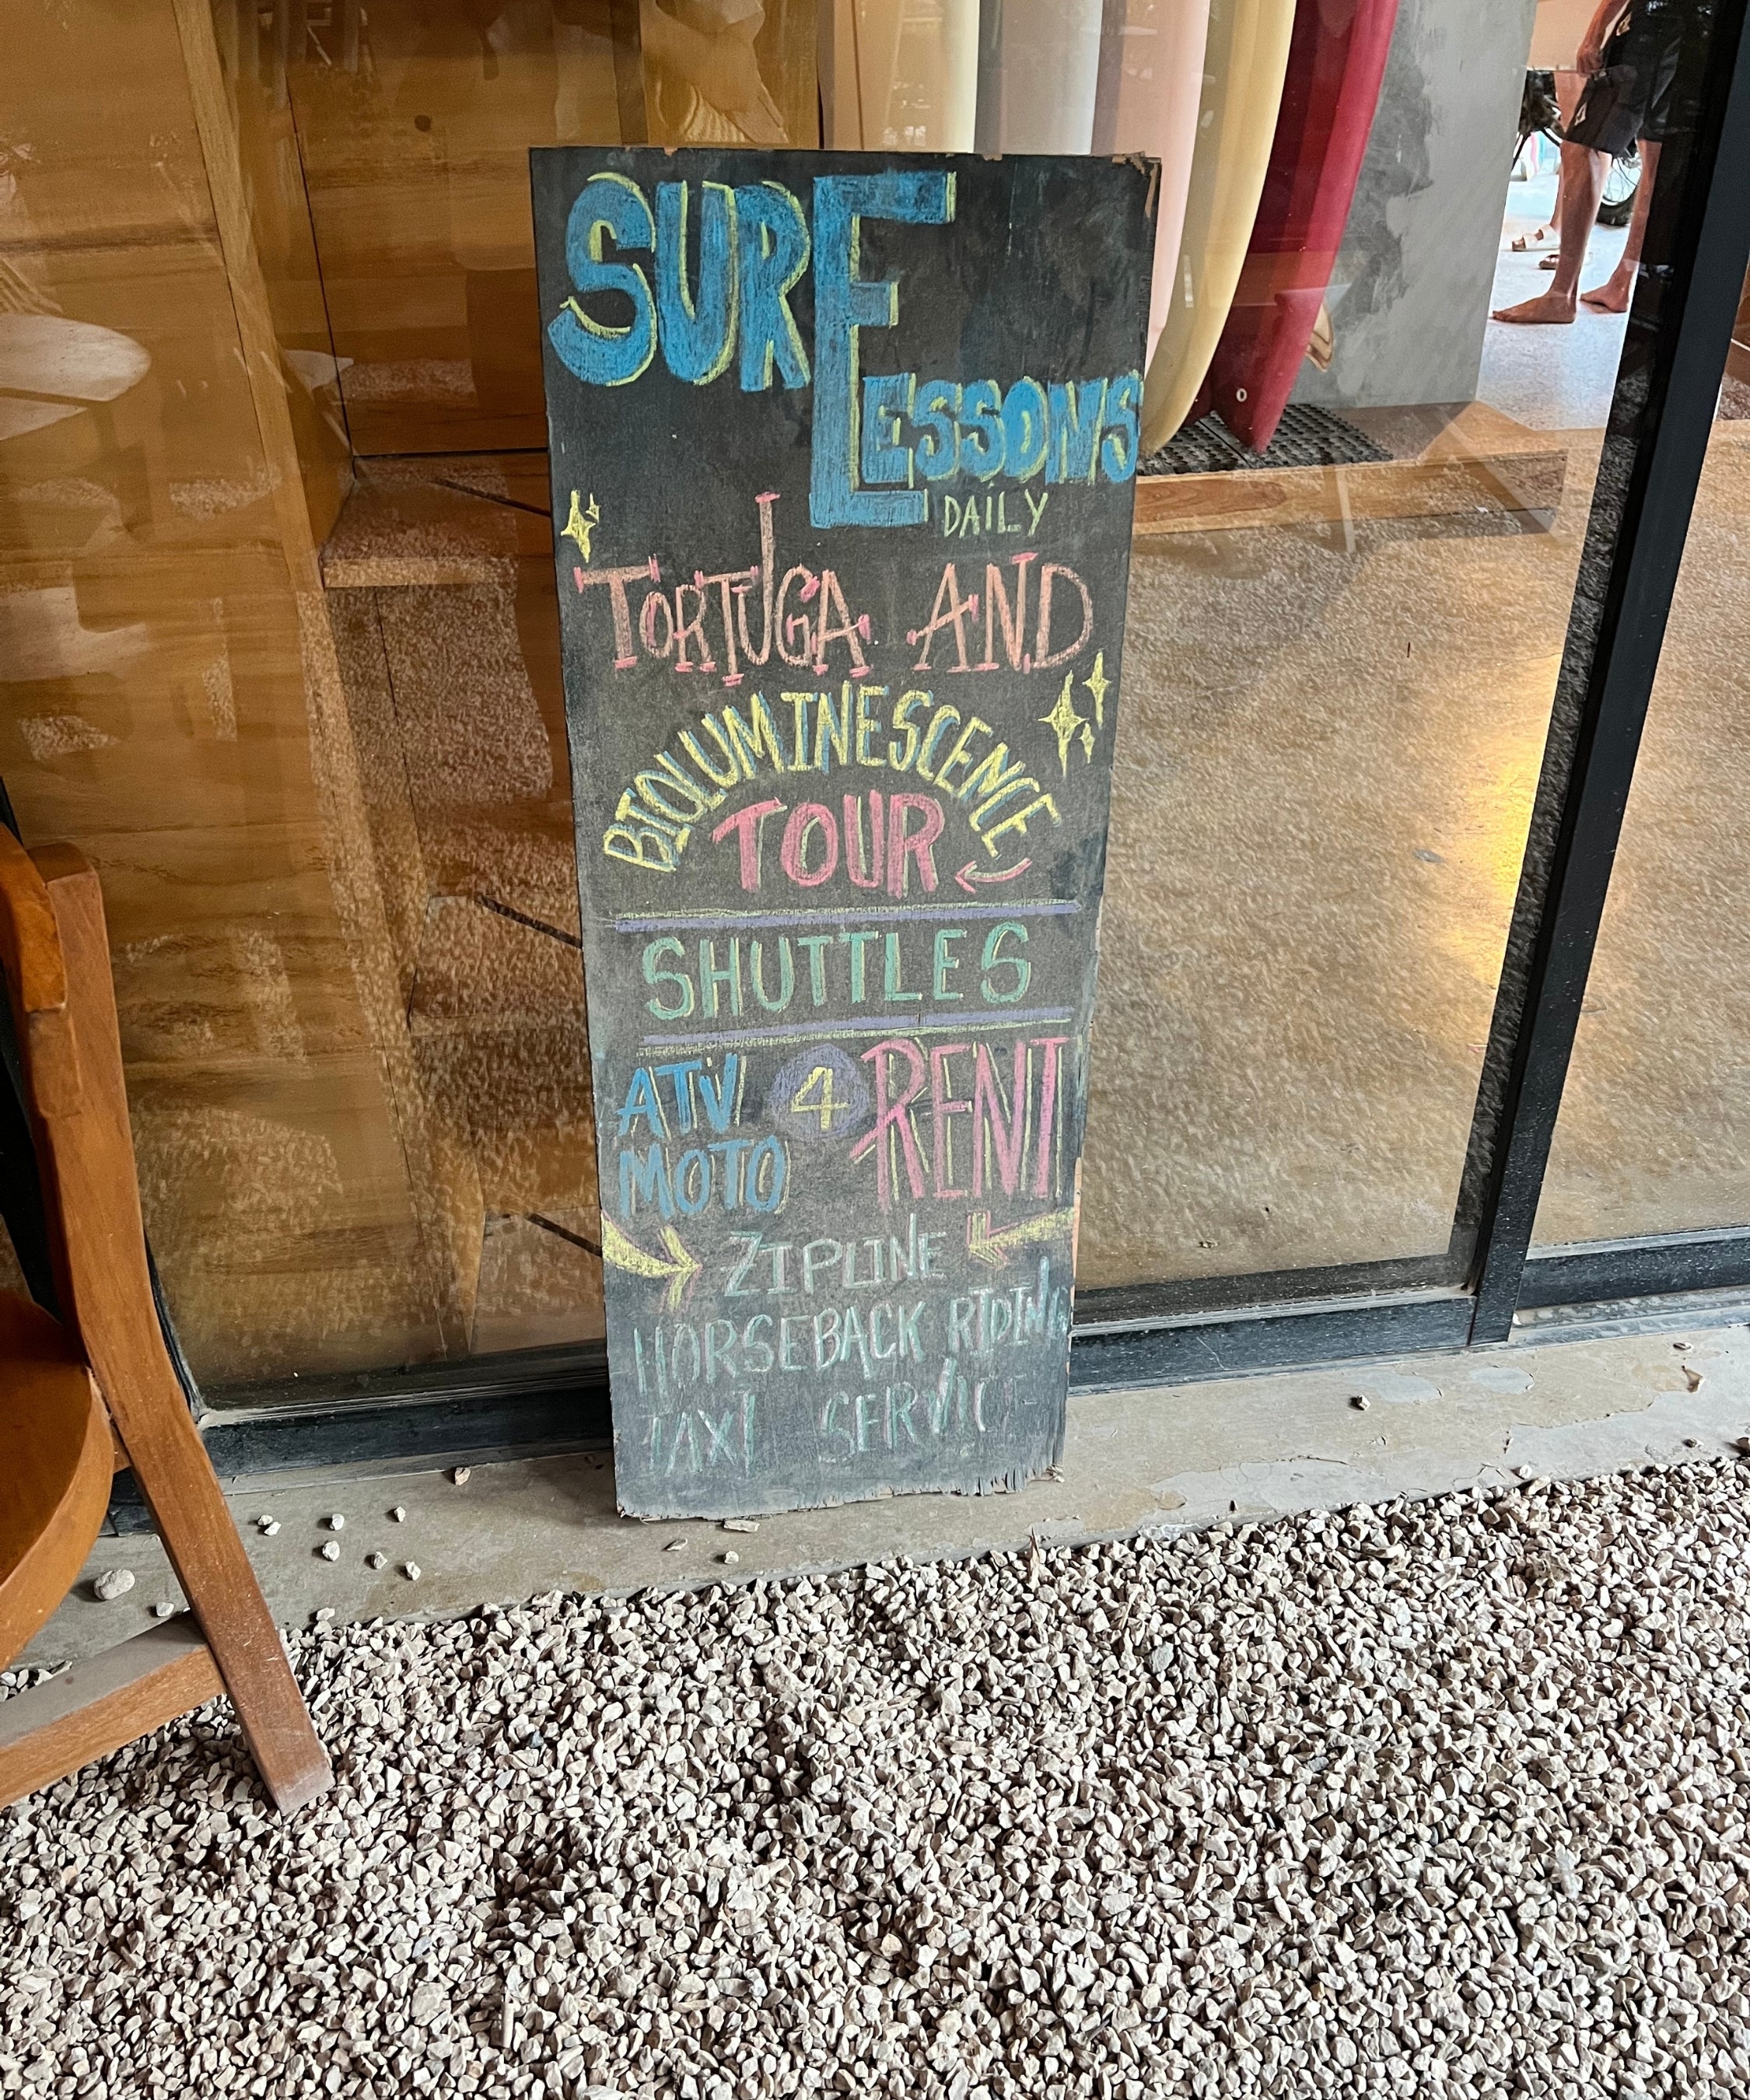 SURF
LESSONS
DAILY
TORTUGA AND
BIOLUMINESCENCE
TOUR
SHUTTLES
ATV 4 RENT
MOTO
ZIPLINE
HORSEBACK RIDING
TAXI SERVICE